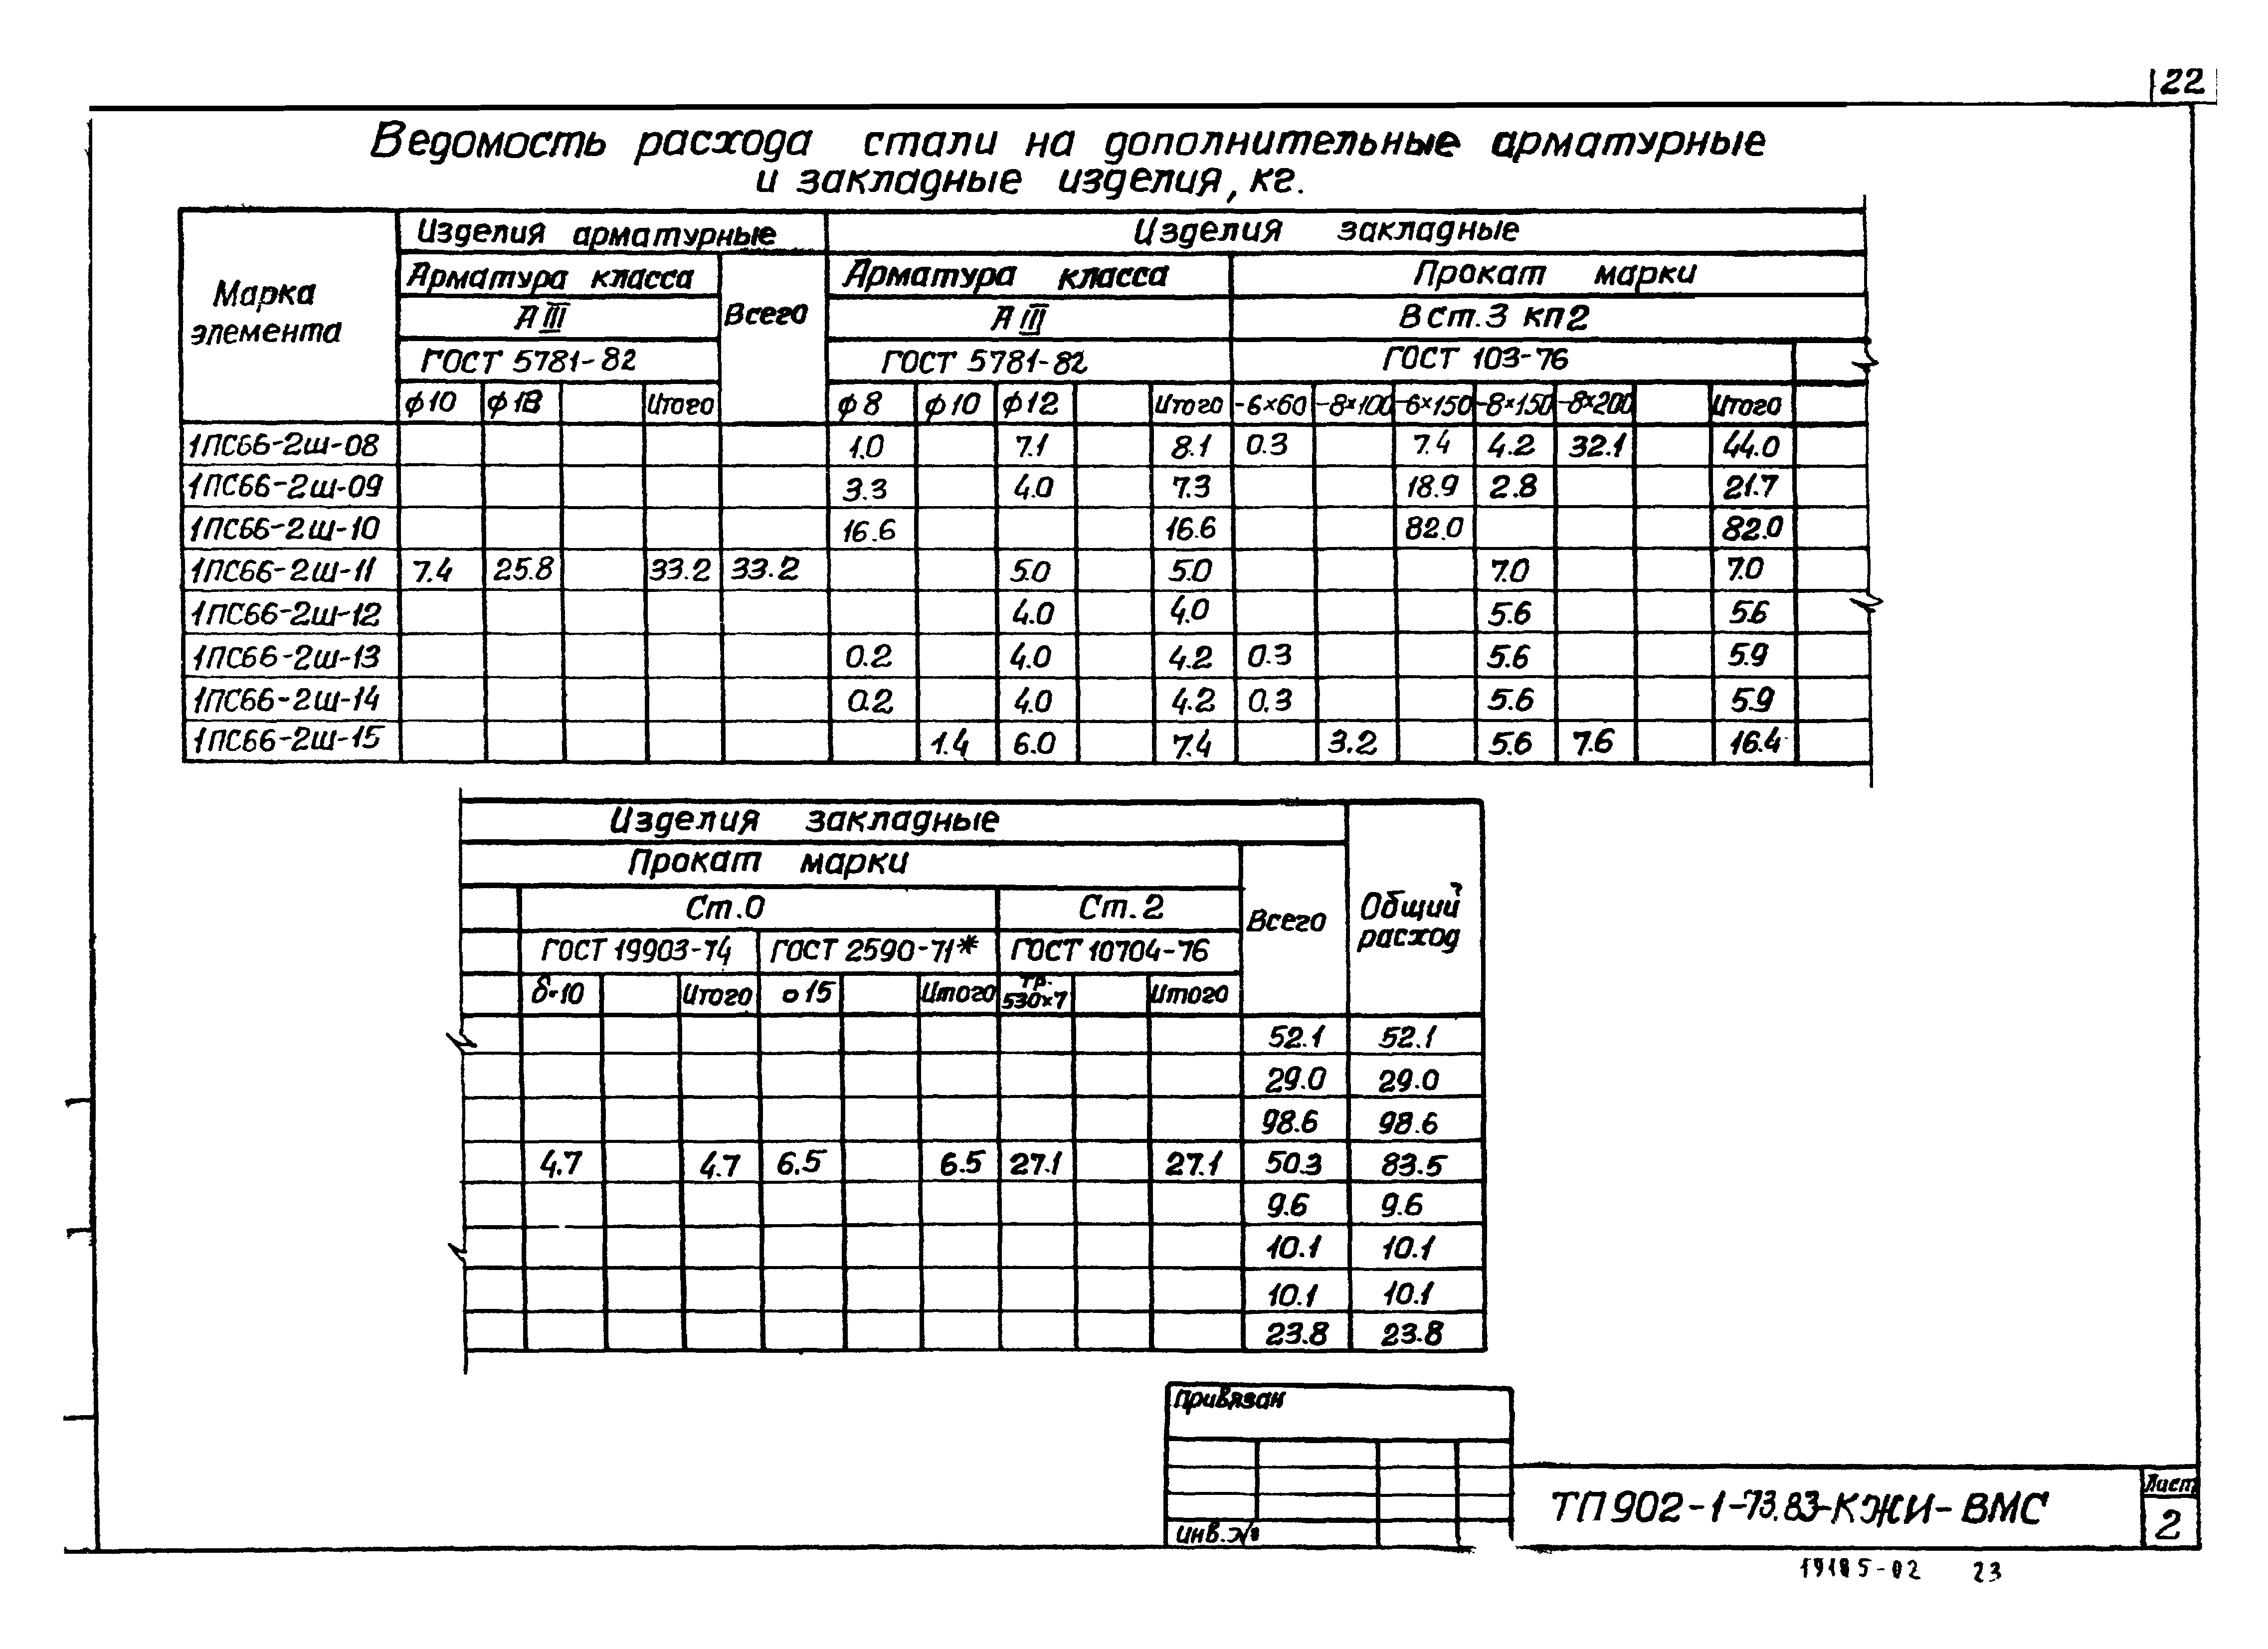 22
Ведомость расхода стали на дополнительные арматурные
и закладные изделия, кг.
Марка элемента | Изделия арматурные | Изделия закладные
Арматура класса | Всего | Арматура класса | Прокат марки
А III | А III | В Ст.3 кп2
ГОСТ 5781-82 | ГОСТ 5781-82 | ГОСТ 103-76
ϕ10 ϕ18 Итого ϕ8 ϕ10 ϕ12 Итого -6×60 -8×100 -6×150 -8×150 -8×200 Итого
1ПС66-2ш-08 1.0 7.1 8.1 0.3 7.4 4.2 32.1 44.0
1ПС66-2ш-09 3.3 4.0 7.3 18.9 2.8 21.7
1ПС66-2ш-10 16.6 16.6 82.0 82.0
1ПС66-2ш-11 7.4 25.8 33.2 33.2 5.0 5.0 7.0 7.0
1ПС66-2ш-12 4.0 4.0 5.6 5.6
1ПС66-2ш-13 0.2 4.0 4.2 0.3 5.6 5.9
1ПС66-2ш-14 0.2 4.0 4.2 0.3 5.6 5.9
1ПС66-2ш-15 1.4 6.0 7.4 3.2 5.6 7.6 16.4
Изделия закладные | Общий расход
Прокат марки | Всего
Ст.0 | Ст.2
ГОСТ 19903-74 | ГОСТ 2590-71* | ГОСТ 10704-76
δ-10 Итого о15 Итого Тр. 530×7 Итого
52.1 52.1
29.0 29.0
98.6 98.6
4.7 4.7 6.5 6.5 27.1 27.1 50.3 83.5
9.6 9.6
10.1 10.1
10.1 10.1
23.8 23.8
Привязан
Инв.№
ТП 902-1-73.83-КЖИ-ВМС
Лист
2
19185-02 23